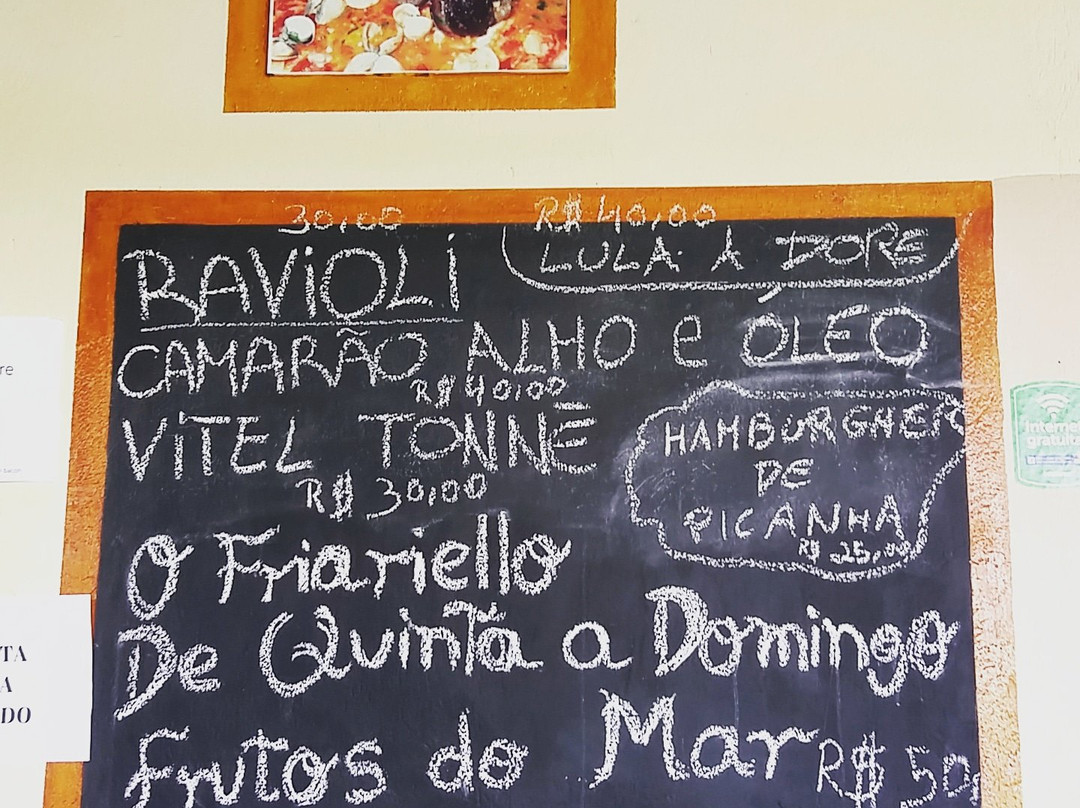 30,00
R$ 40,00
RAViOLi
LULA À DORÊ
CAMARÃO ALHO e ÓLEO
R$40,00
ViTEL TONNÈ
HAMBURGHER
DE
PICANHA
R$ 25,00
R$ 30,00
O Friariello
De Quinta a Domingo
Frutos do Mar R$ 50,
re
TA
A
DO
Internet
gratuita